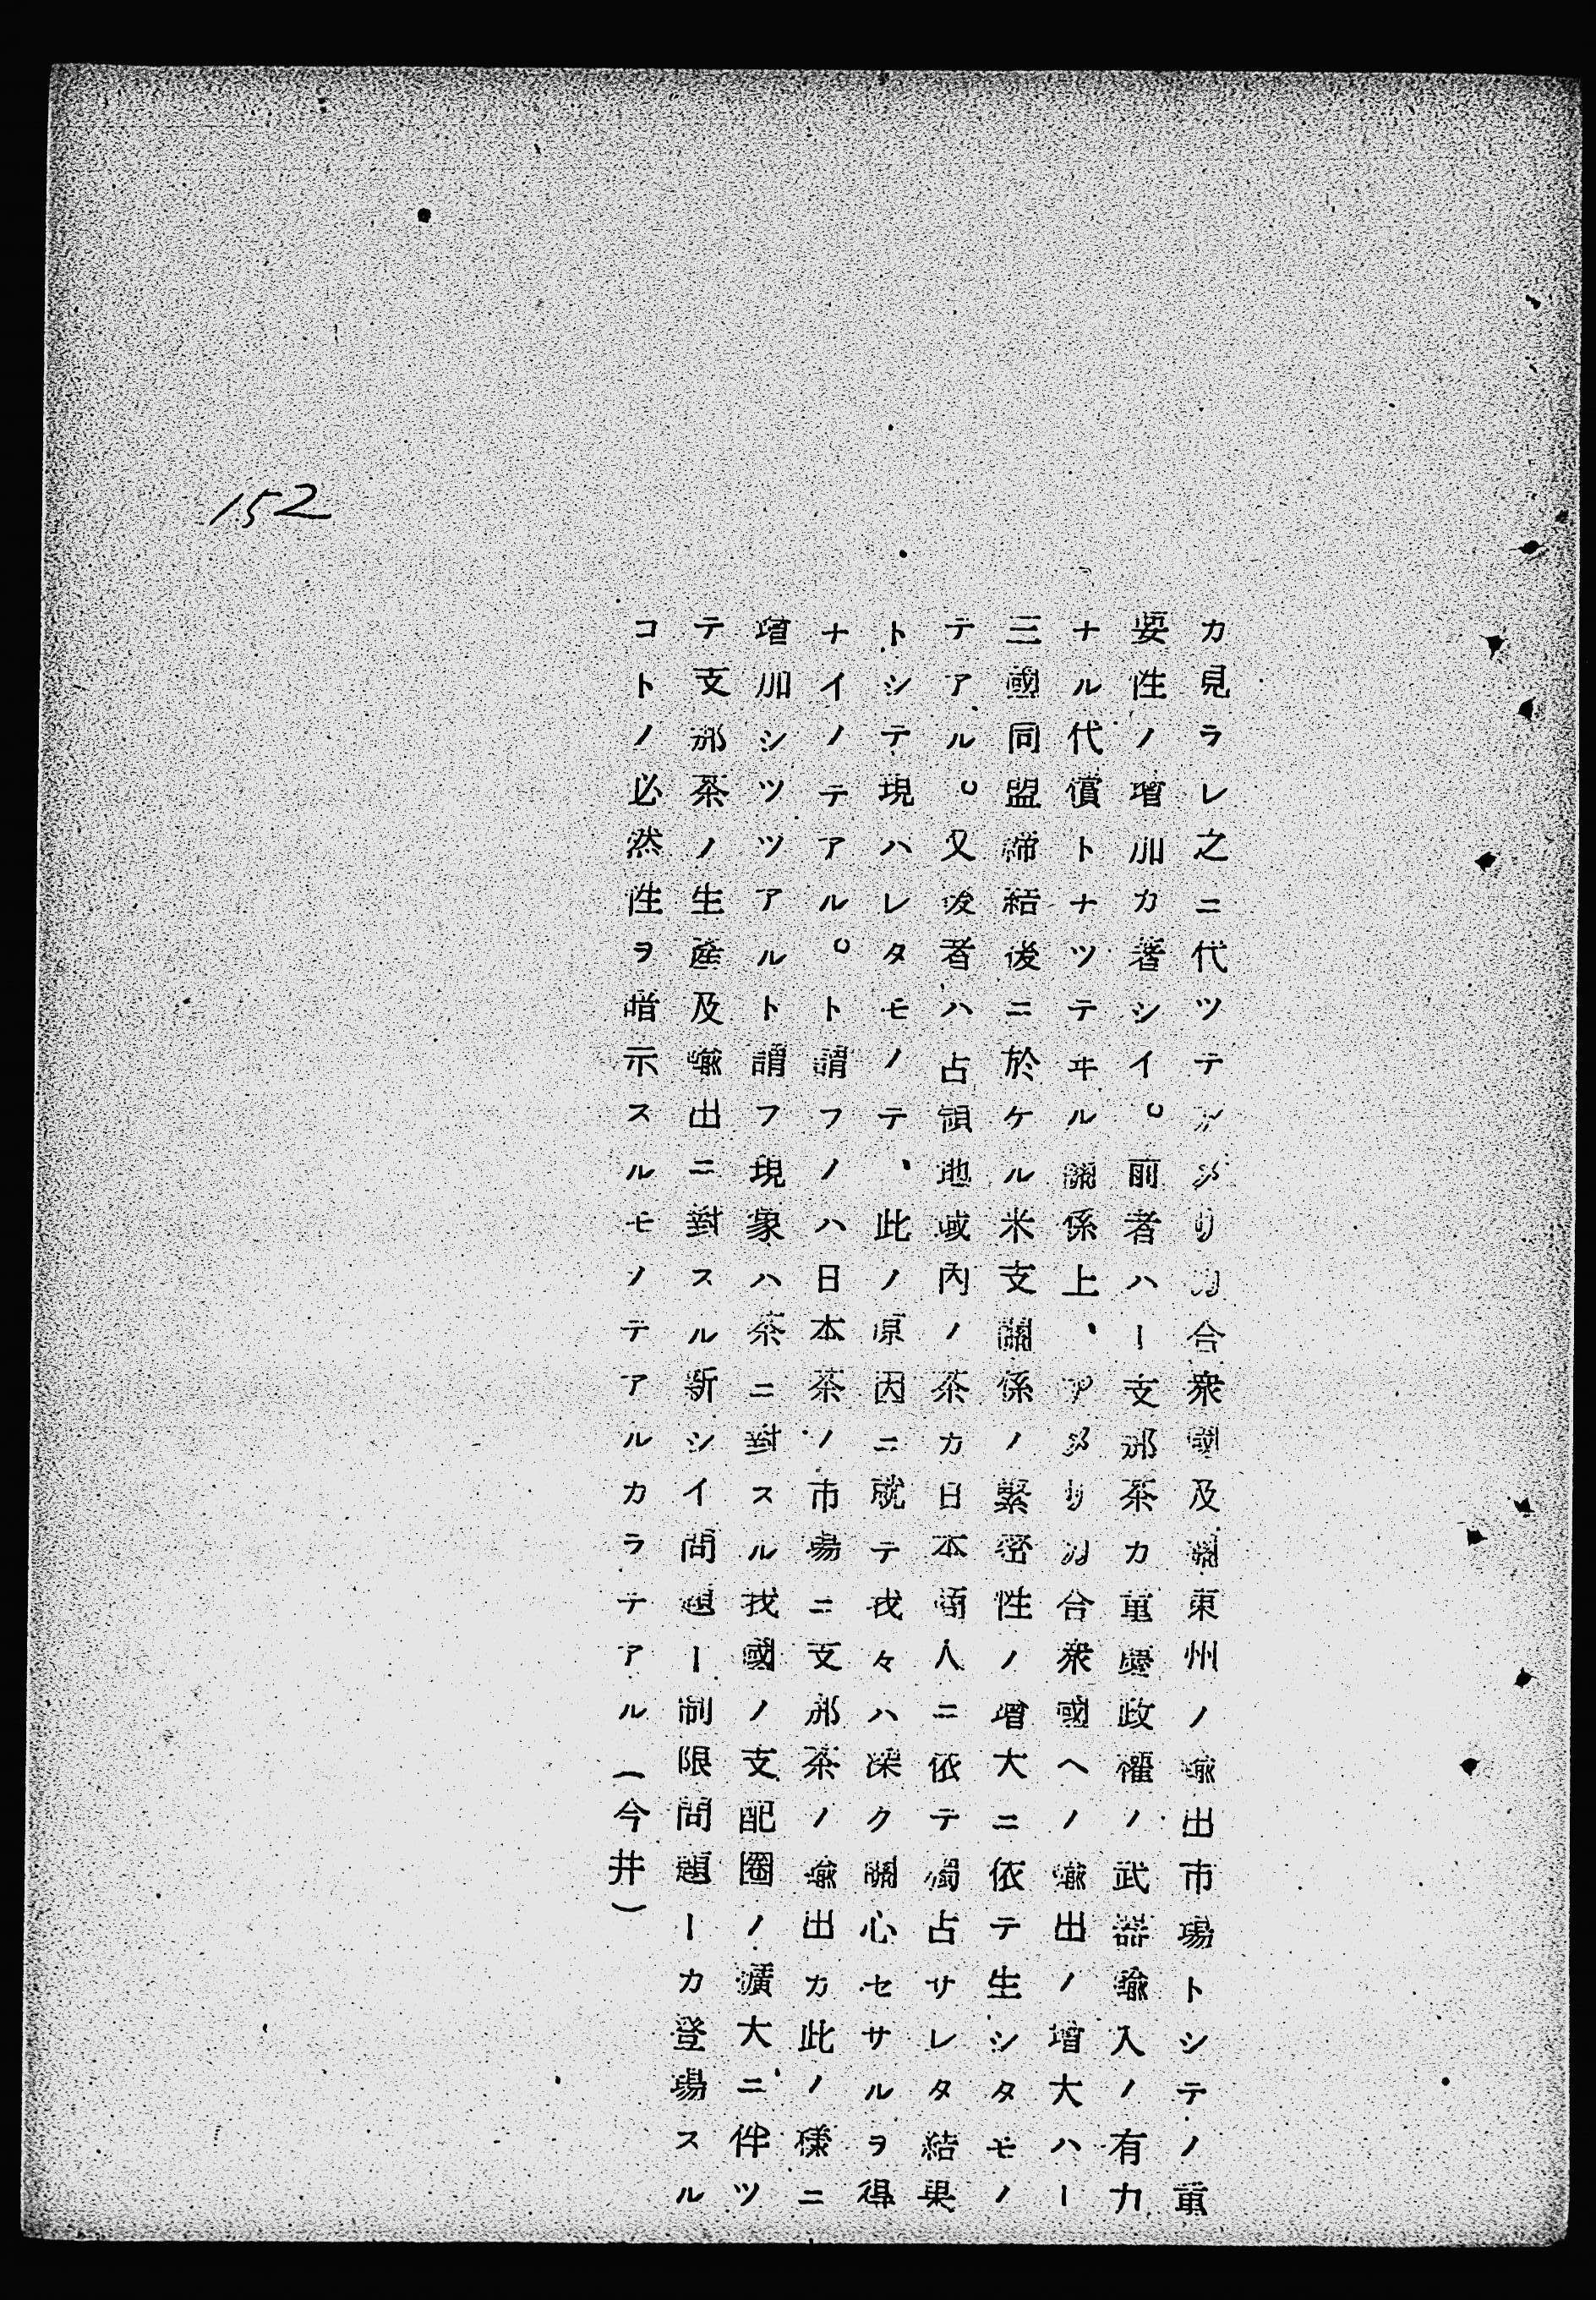 カ見ラレ之ニ代ツテアメリカ合衆國及關東州ノ輸出市場トシテノ重
要性ノ增加カ著シイ。前者ハー支那茶カ重慶政權ノ武器輸入ノ有力
ナル代償トナツテヰル關係上、アメリカ合衆國ヘノ輸出ノ增大ハー
三國同盟締結後ニ於ケル米支關係ノ緊密性ノ增大ニ依テ生シタモノ
テアル。又後者ハ占領地域內ノ茶カ日本商人ニ依テ獨占サレタ結果
トシテ現ハレタモノテ、此ノ原因ニ就テ我々ハ深ク關心セサルヲ得
ナイノテアル。ト謂フノハ日本茶ノ市場ニ支那茶ノ輸出カ此ノ樣ニ
增加シツツアルト謂フ現象ハ茶ニ對スル我國ノ支配圈ノ擴大ニ伴ツ
テ支那茶ノ生產及輸出ニ對スル新シイ問題ー制限問題ーカ登場スル
コトノ必然性ヲ暗示スルモノテアルカラテアル(今井)
152